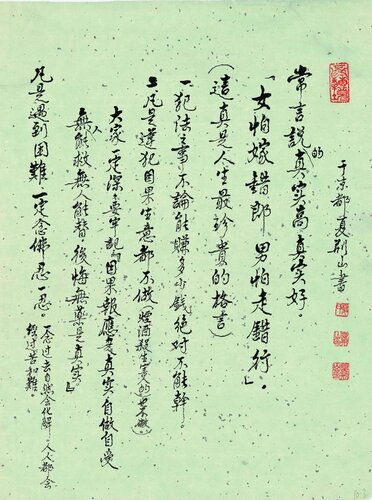 于京都夏荆山書
常言說的真實高真實好
「女怕嫁錯郎 男怕走錯行」。
(這真是人生最珍貴的格言)
一犯法之事不論能賺多少錢絕对不能幹。
二凡是違犯因果生意都不做(煙酒殺生
大家一定深深要牢記「因果報應是真實自做自受
無人能救無人能替後悔無藥是真實」
凡是遇到困難一定念佛忍一忍
过去自然会化解。人人都会
經过苦和難。